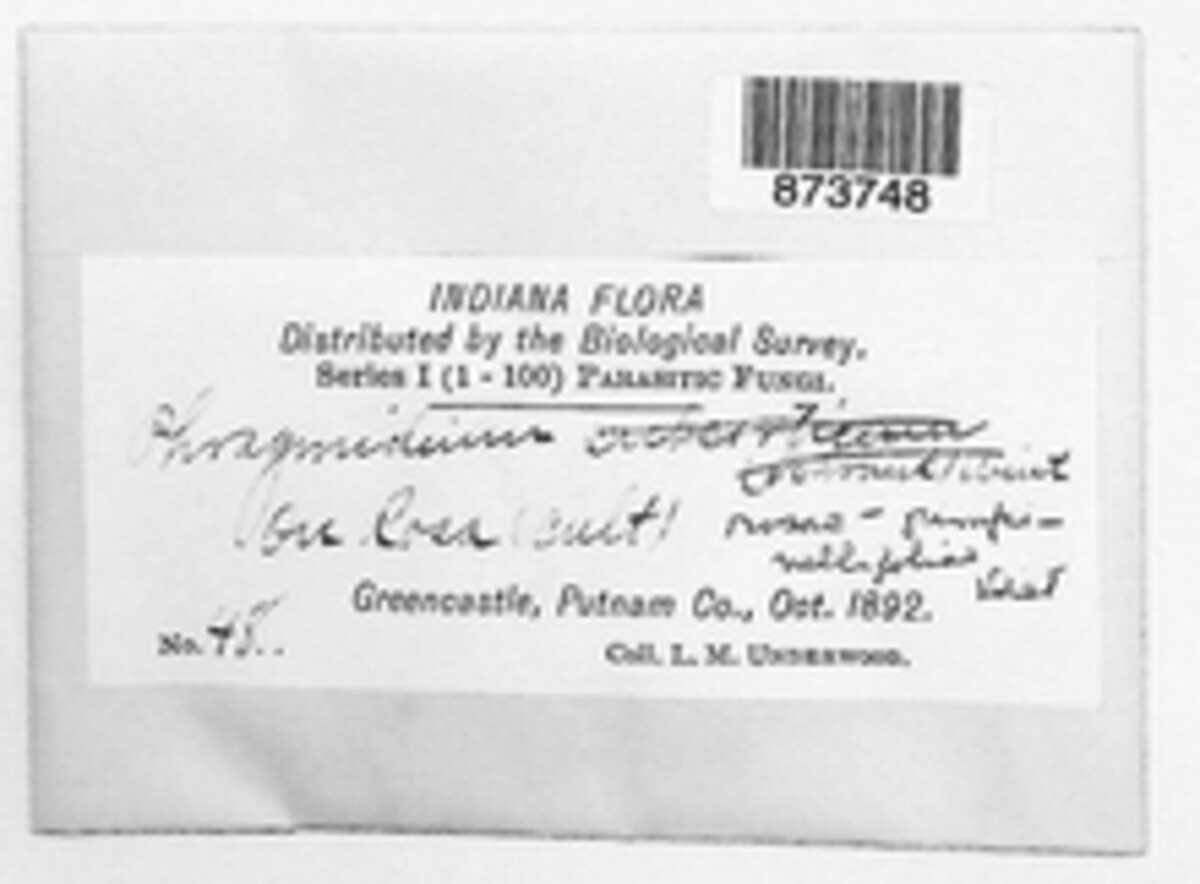 873748
INDIANA FLORA
Distributed by the Biological Survey.
Series I (1 - 100) PARASITIC FUNGI.
Phragmidium
on Rosa (cult)
rosae - pimpi-
nellifoliae
Greencastle, Putnam Co., Oct. 1892.
No. 45..
Coll. L. M. UNDERWOOD.